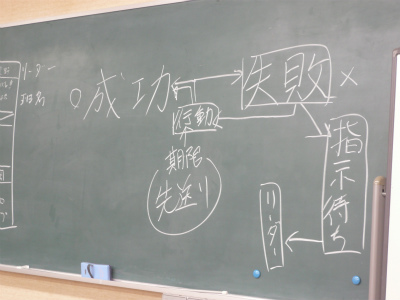 リーダー
○成功
失敗×
行動
期限
先送り
指示待ち
リーダー